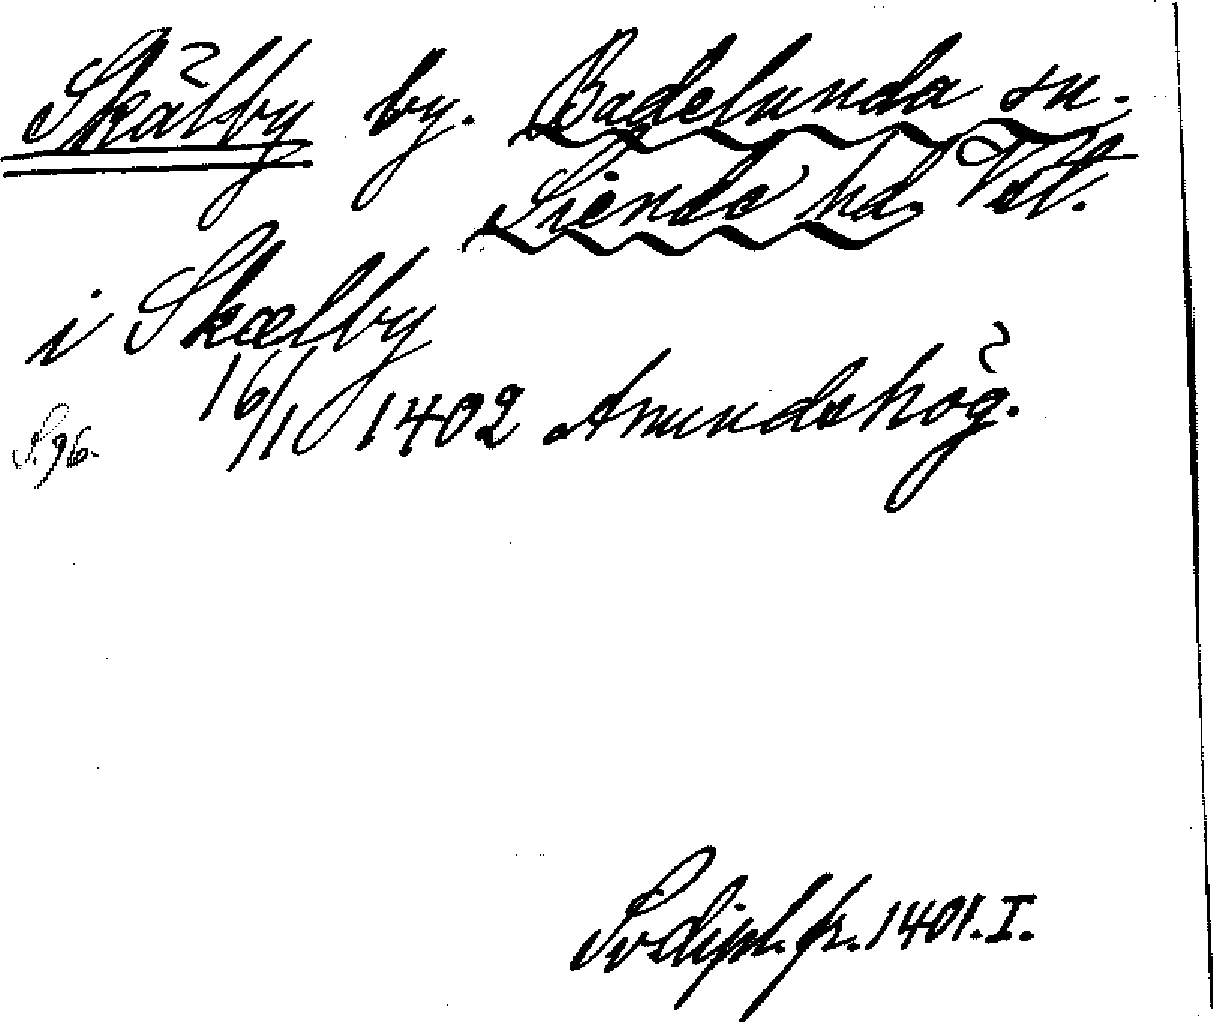 Skälby by. Badelunda sn.
Siende hd. Vstl.
i Skælby
16/10 1402 Anundshög.
S. 96.
Sv dipl. fr. 1401. I.